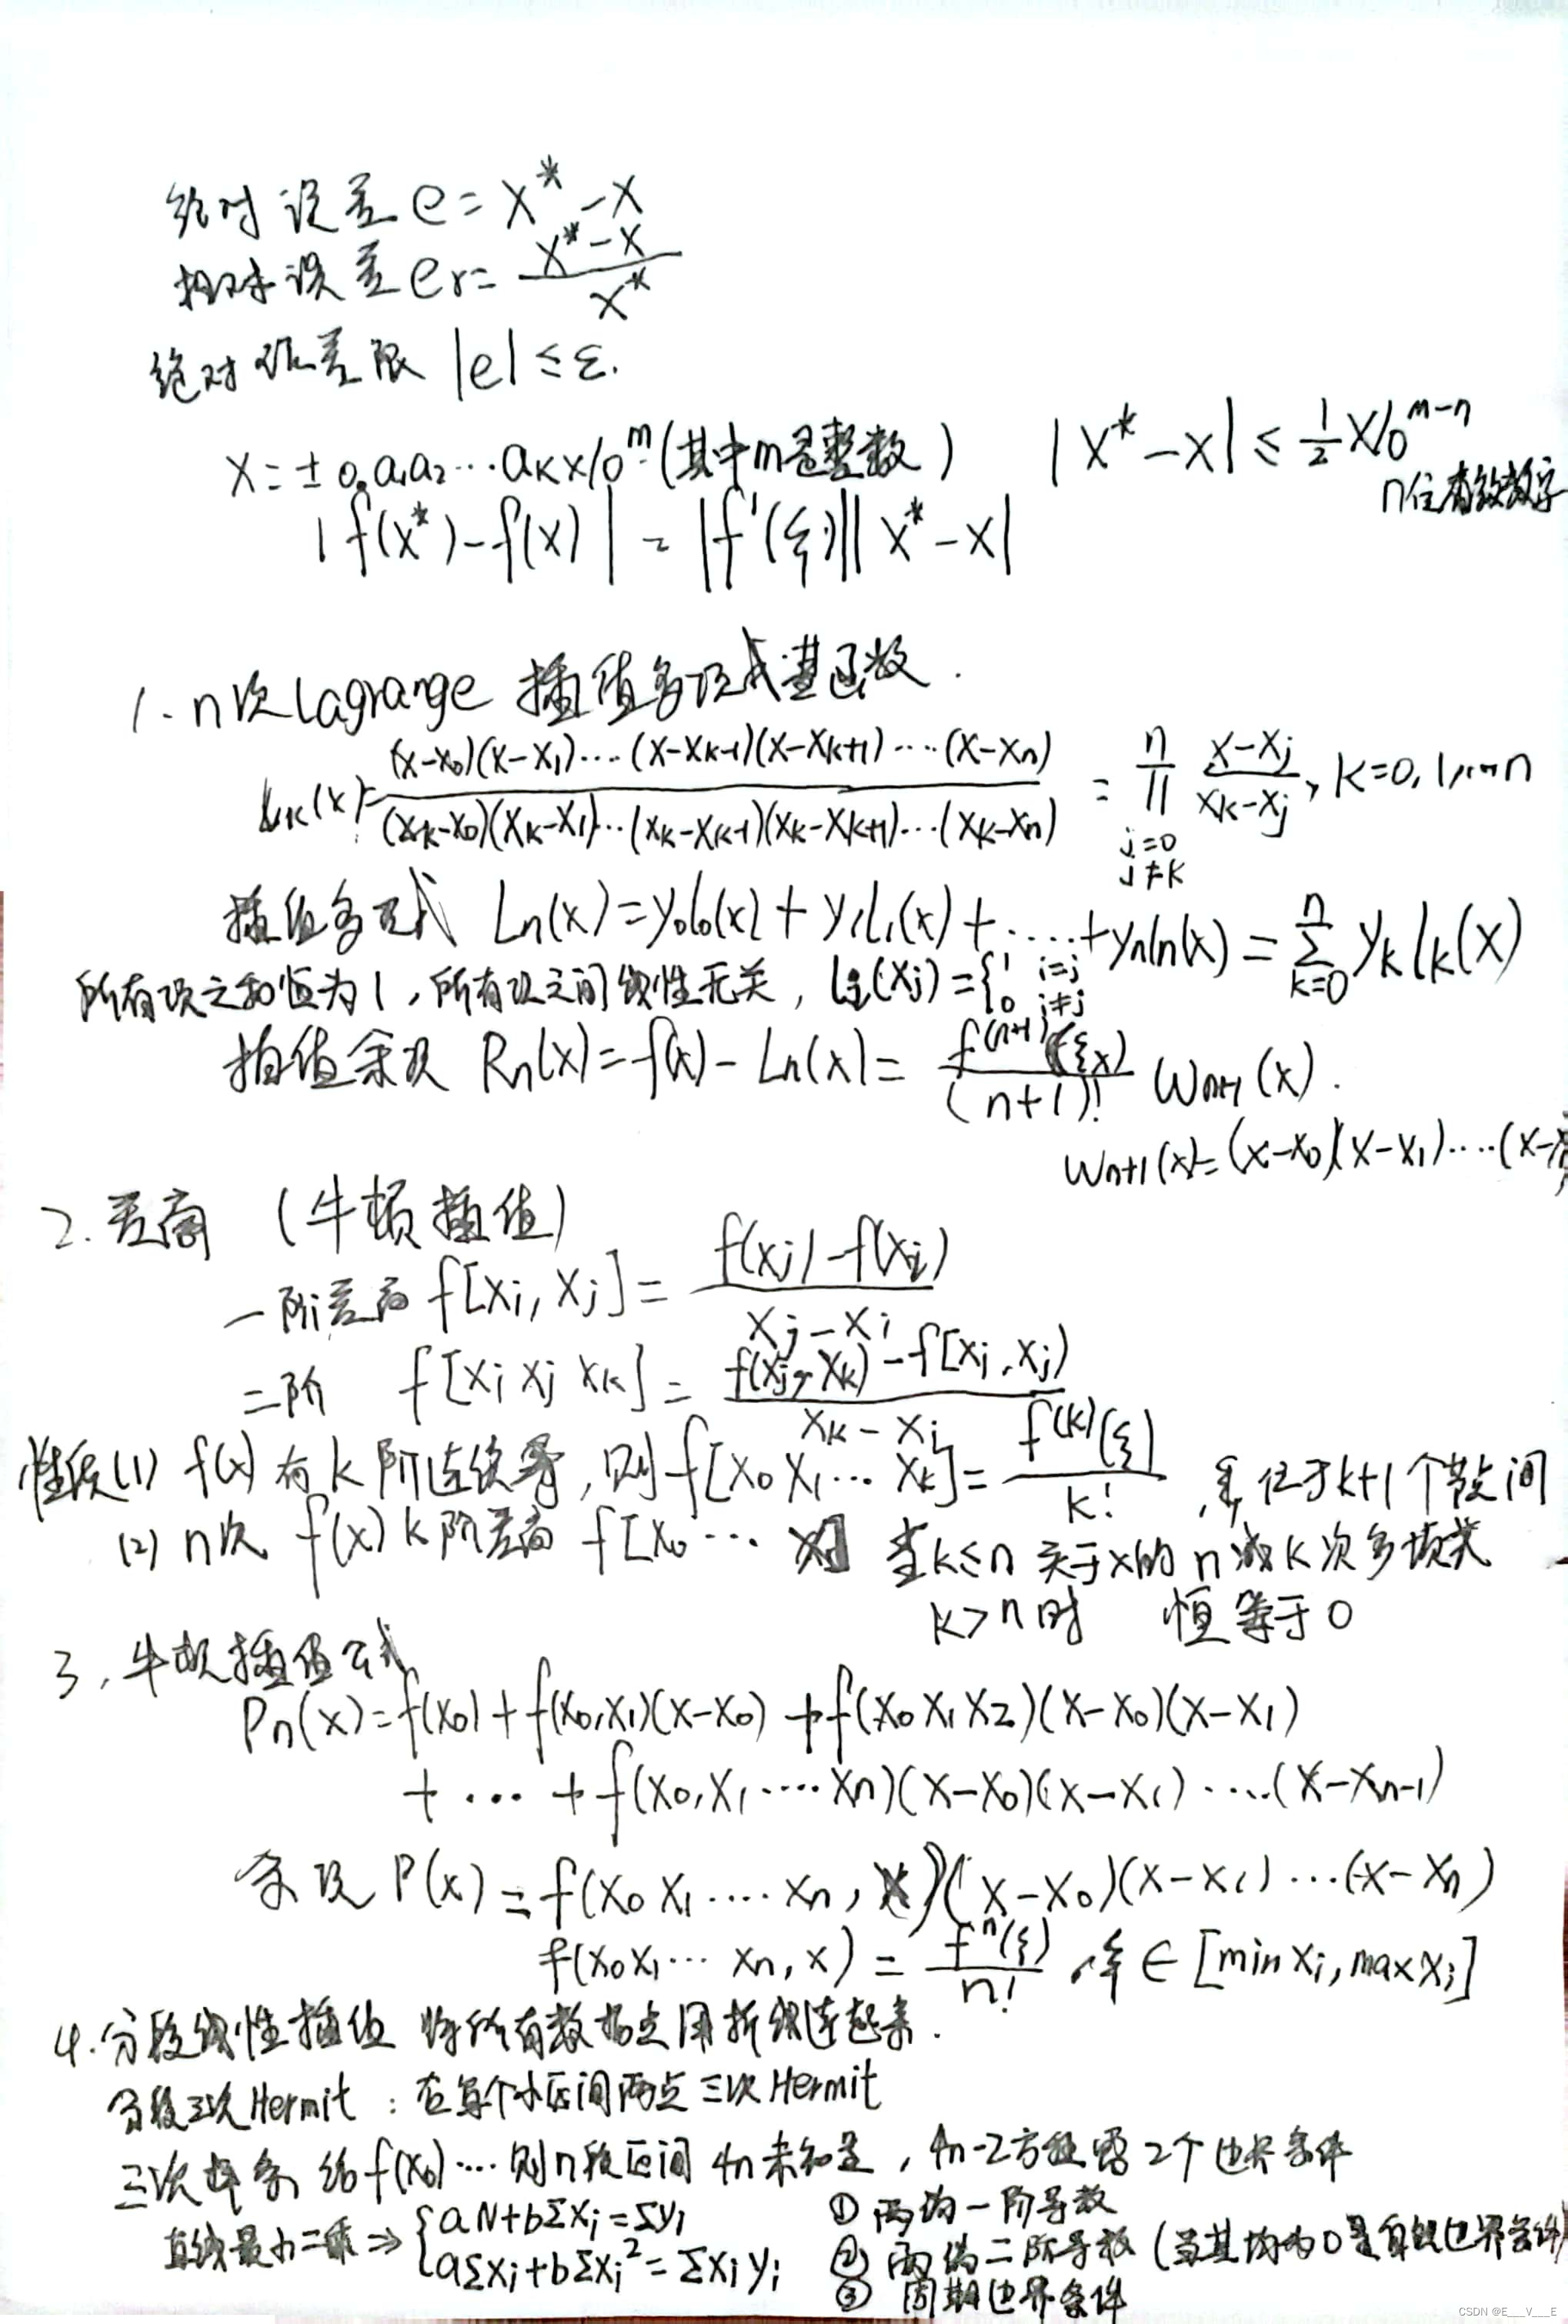 绝对误差 e = x* - x
相对误差 er = (x* - x) / x*
绝对误差限 |e| ≤ ε.
x = ± 0.a1a2…ak×10^m (其中m是整数) |x* - x| ≤ 1/2 × 10^(m-n)
n位有效数字
|f(x*) - f(x)| = |f'(ξ)||x* - x|
1. n次Lagrange 插值多项式基函数.
lk(x) = (x-x0)(x-x1)…(x-xk-1)(x-xk+1)…(x-xn) / (xk-x0)(xk-x1)…(xk-xk-1)(xk-xk+1)…(xk-xn) = ∏(j=0, j≠k)^n (x-xj)/(xk-xj), k=0,1,…n
插值多项式 Ln(x) = y0l0(x) + y1l1(x) + …… + ynln(x) = Σ(k=0)^n yklk(x)
所有项之和恒为1, 所有项之间线性无关, li(xj) = {1 i=j 0 i≠j
插值余项 Rn(x) = f(x) - Ln(x) = f^(n+1)(ξx) / (n+1)! Wn+1(x).
Wn+1(x) = (x-x0)(x-x1)…(x-
2. 差商 (牛顿插值)
一阶差商 f[xi, xj] = (f(xj) - f(xi)) / (xj - xi)
二阶 f[xi xj xk] = (f(xj, xk) - f[xi, xj)) / (xk - xi)
性质(1) f(x) 有 k 阶连续导, 则 f[x0 x1 … xk] = f^(k)(ξ) / k! , ξ位于k+1个节点间
(2) n次 f(x) k阶差商 f[x0 … x] 当k≤n 关于x的n减k次多项式
k>n时 恒等于0
3. 牛顿插值公式
Pn(x) = f(x0) + f(x0,x1)(x-x0) + f(x0 x1 x2)(x-x0)(x-x1)
+ … + f(x0,x1……xn)(x-x0)(x-x1)……(x-xn-1)
余项 P(x) = f(x0 x1 …… xn, x)(x-x0)(x-x1)…(x-xn)
f(x0x1… xn, x) = f^n(ξ) / n! , ξ ∈ [min xi, max xi]
4. 分段线性插值 将所有数据点用折线连起来.
分段三次Hermit : 在每个小区间两点三次Hermit
三次样条 给f(x0)…. 则n段区间 4n未知量, 4n-2方程需2个边界条件
直线最小二乘 ⇒ {aN+bΣxi=Σyi ① 两端一阶导数
aΣxi+bΣxi²=Σxiyi ② 两端二阶导数 (当其均为0是自然边界条件)
③ 周期边界条件
CSDN @E___V___E